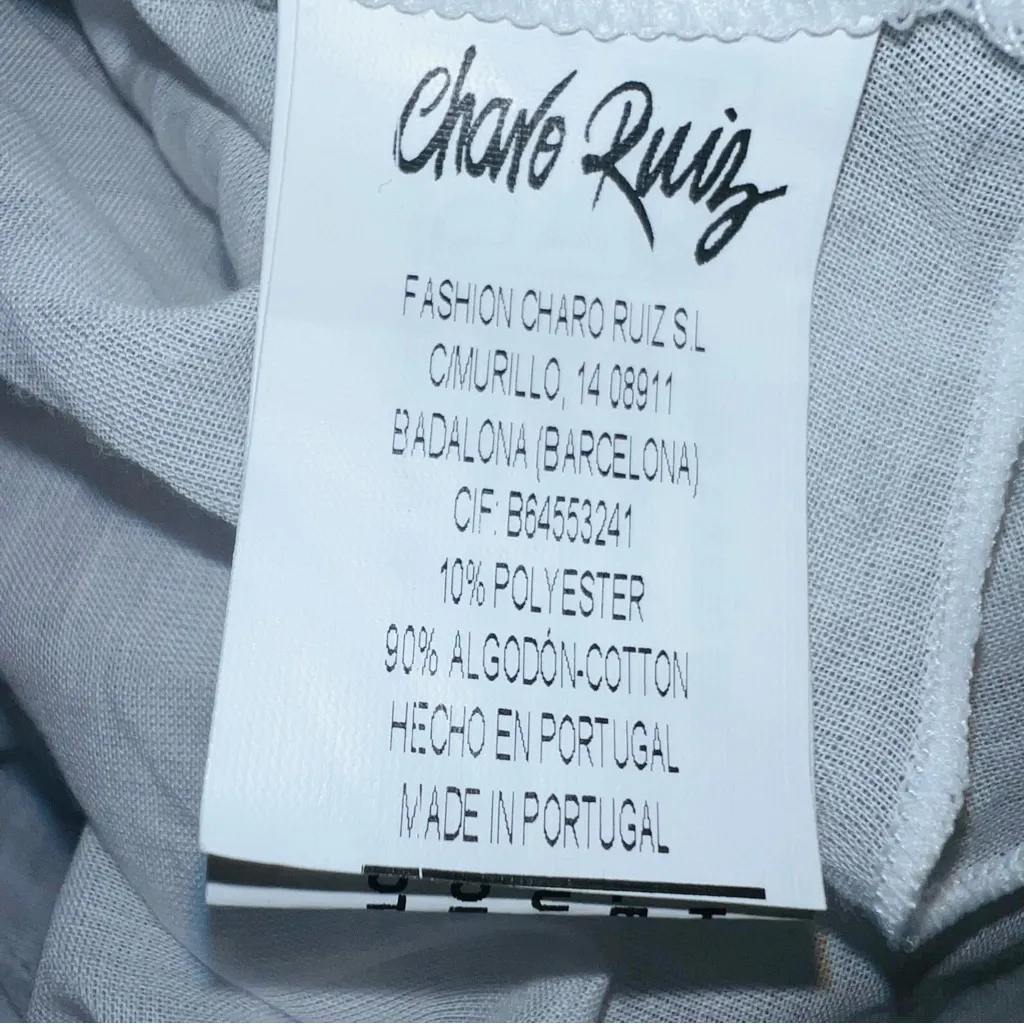 Charo Ruiz
FASHION CHARO RUIZ S.L
C/MURILLO, 14 08911
BADALONA (BARCELONA)
CIF: B64553241
10% POLYESTER
90% ALGODÓN-COTTON
HECHO EN PORTUGAL
MADE IN PORTUGAL